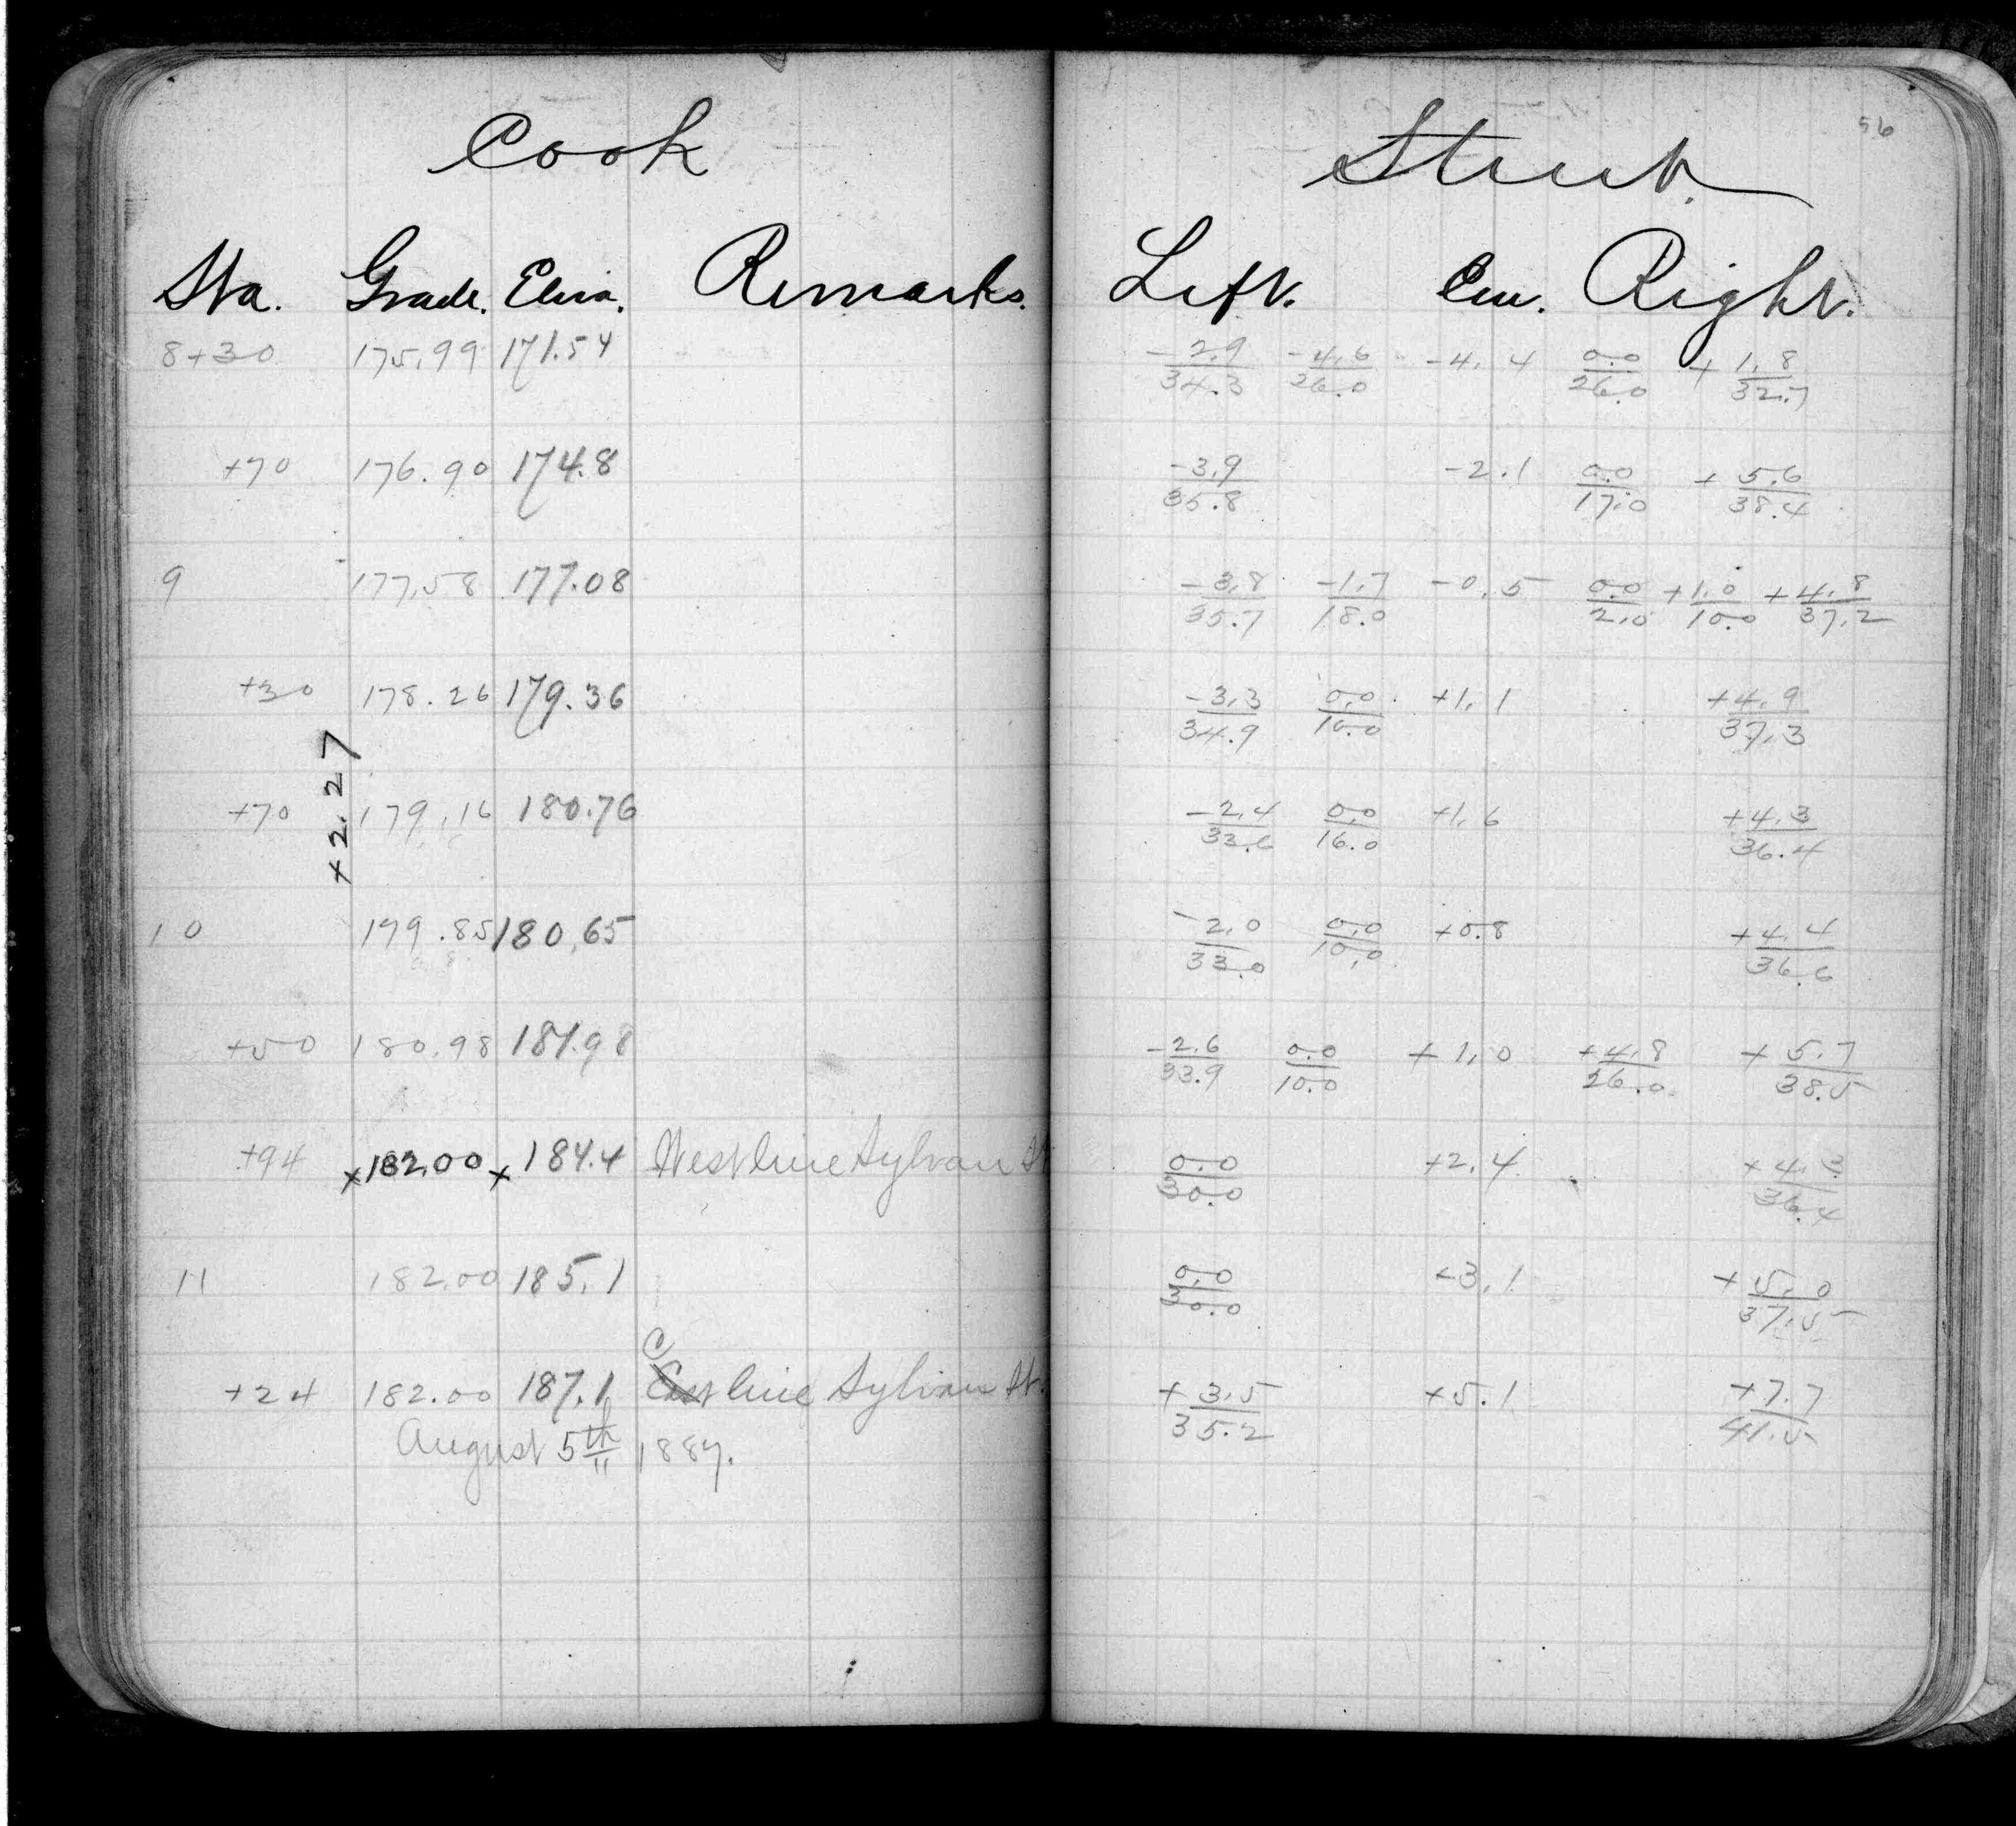 Cook Street.
56
Sta. Grade. Elev. Remarks. Left. Cen. Right.
8+30 175.99 171.54 -2.9/34.3 -4.6/26.0 -4.4 0.0/26.0 +1.8/32.7
+70 176.90 174.8 -3.9/35.8 -2.1 0.0/17.0 +5.6/38.4
9 177.58 177.08 -3.8/35.7 -1.7/18.0 -0.5 0.0/2.0 +1.0/10.0 +4.8/37.2
+30 178.26 179.36 -3.3/34.9 0.0/10.0 +1.1 +4.9/37.3
+2.27
+70 179.16 180.76 -2.4/33.6 0.0/16.0 +1.6 +4.3/36.4
10 179.85 180.65 -2.0/33.0 0.0/10.0 +0.8 +4.4/36.6
+50 180.98 181.98 -2.6/33.9 0.0/10.0 +1.0 +4.8/26.0 +5.7/38.5
+94 x182.00 x184.4 West line Sylvan St 0.0/30.0 +2.4 +4.3/36.4
11 182.00 185.1 0.0/30.0 +3.1 +5.0/37.5
+24 182.00 187.1 C line Sylvan St. +3.5/35.2 +5.1 +7.7/41.5
August 5th 1887.